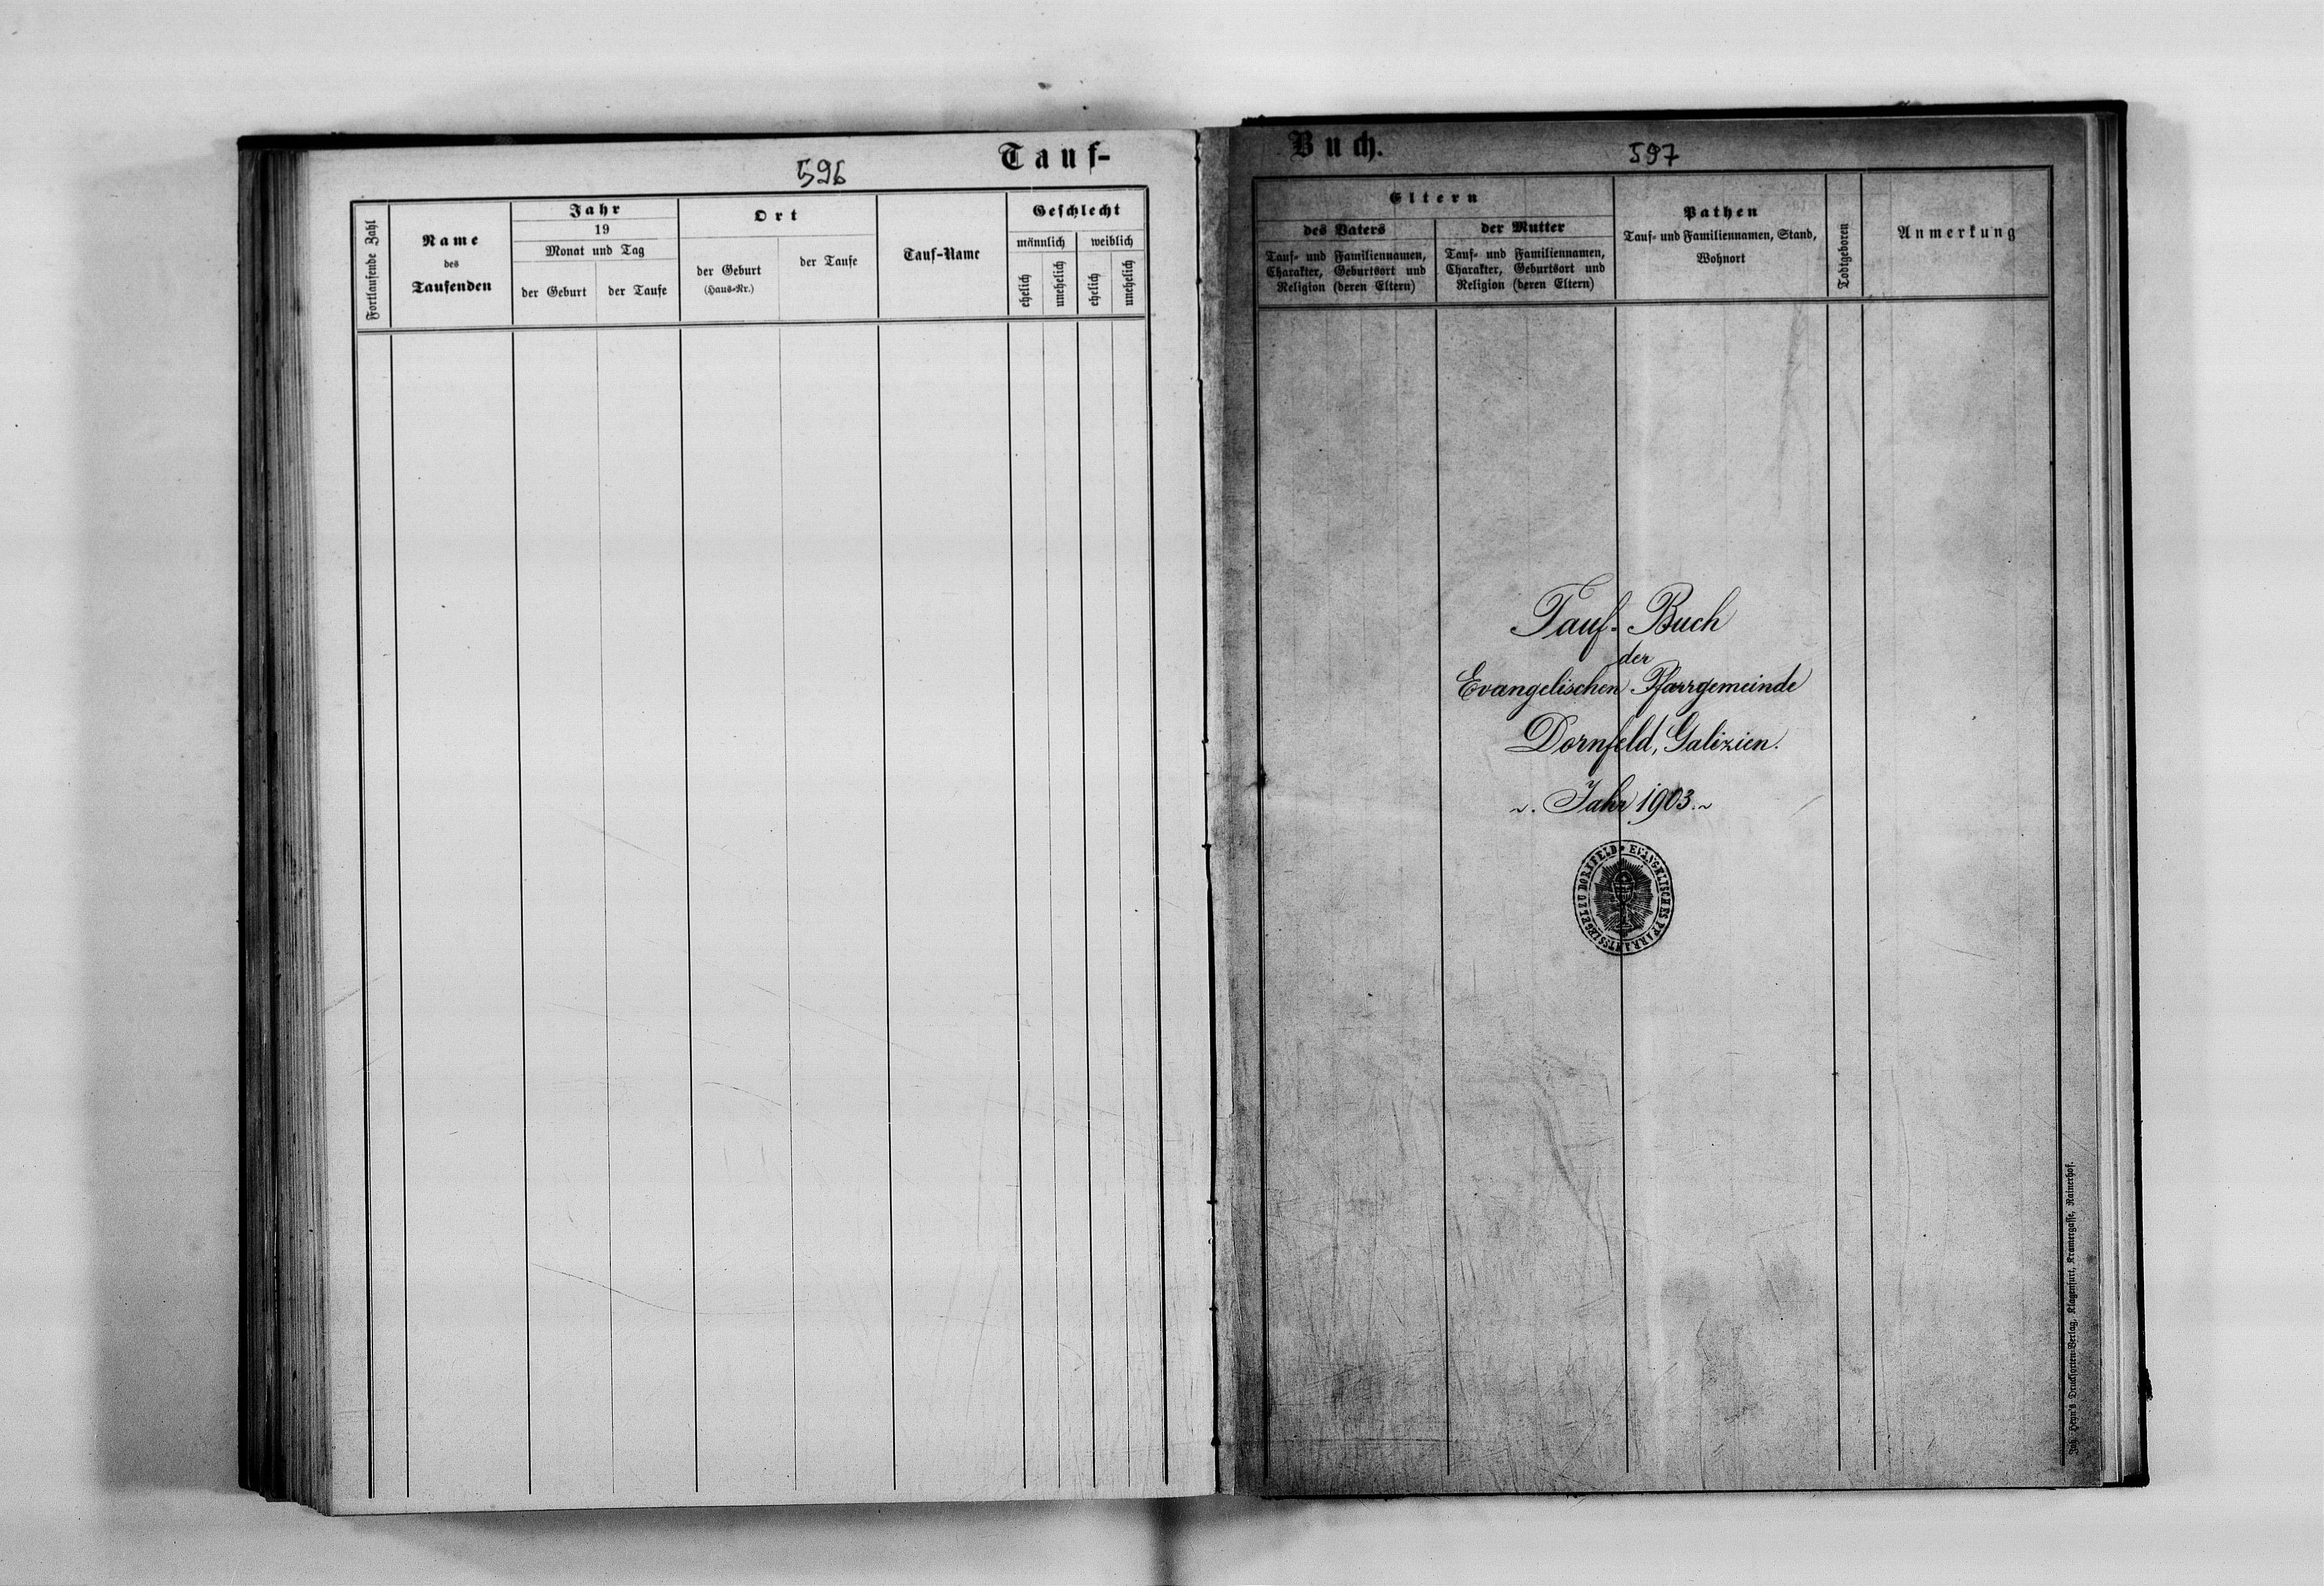 596
Tauf-
Fortlaufende Zahl
Name
des
Taufenden
Jahr
19
Monat und Tag
der Geburt
der Taufe
Ort
der Geburt
(Haus-Nr.)
der Taufe
Tauf-Name
Geschlecht
männlich
weiblich
ehelich
unehelich
ehelich
unehelich
Buch.
597
Eltern
des Vaters
Tauf- und Familiennamen,
Charakter, Geburtsort und
Religion (deren Eltern)
der Mutter
Tauf- und Familiennamen,
Charakter, Geburtsort und
Religion (deren Eltern)
Pathen
Tauf- und Familiennamen, Stand,
Wohnort
Todtgeboren
Anmerkung
Tauf-Buch
der
Evangelischen Pfarrgemeinde
Dornfeld, Galizien.
~. Jahr 1903. ~
EVANGELISCHES PFARRAMTSSIEGEL ZU DORNFELD
Drucksorten-Verlag, Klagenfurt, Kramergasse, Rainerhof.